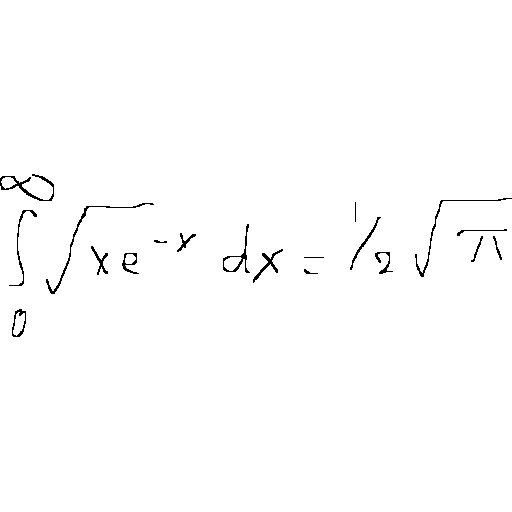 ∫₀^∞ √(xe^{-x}) dx = 1/2 √π